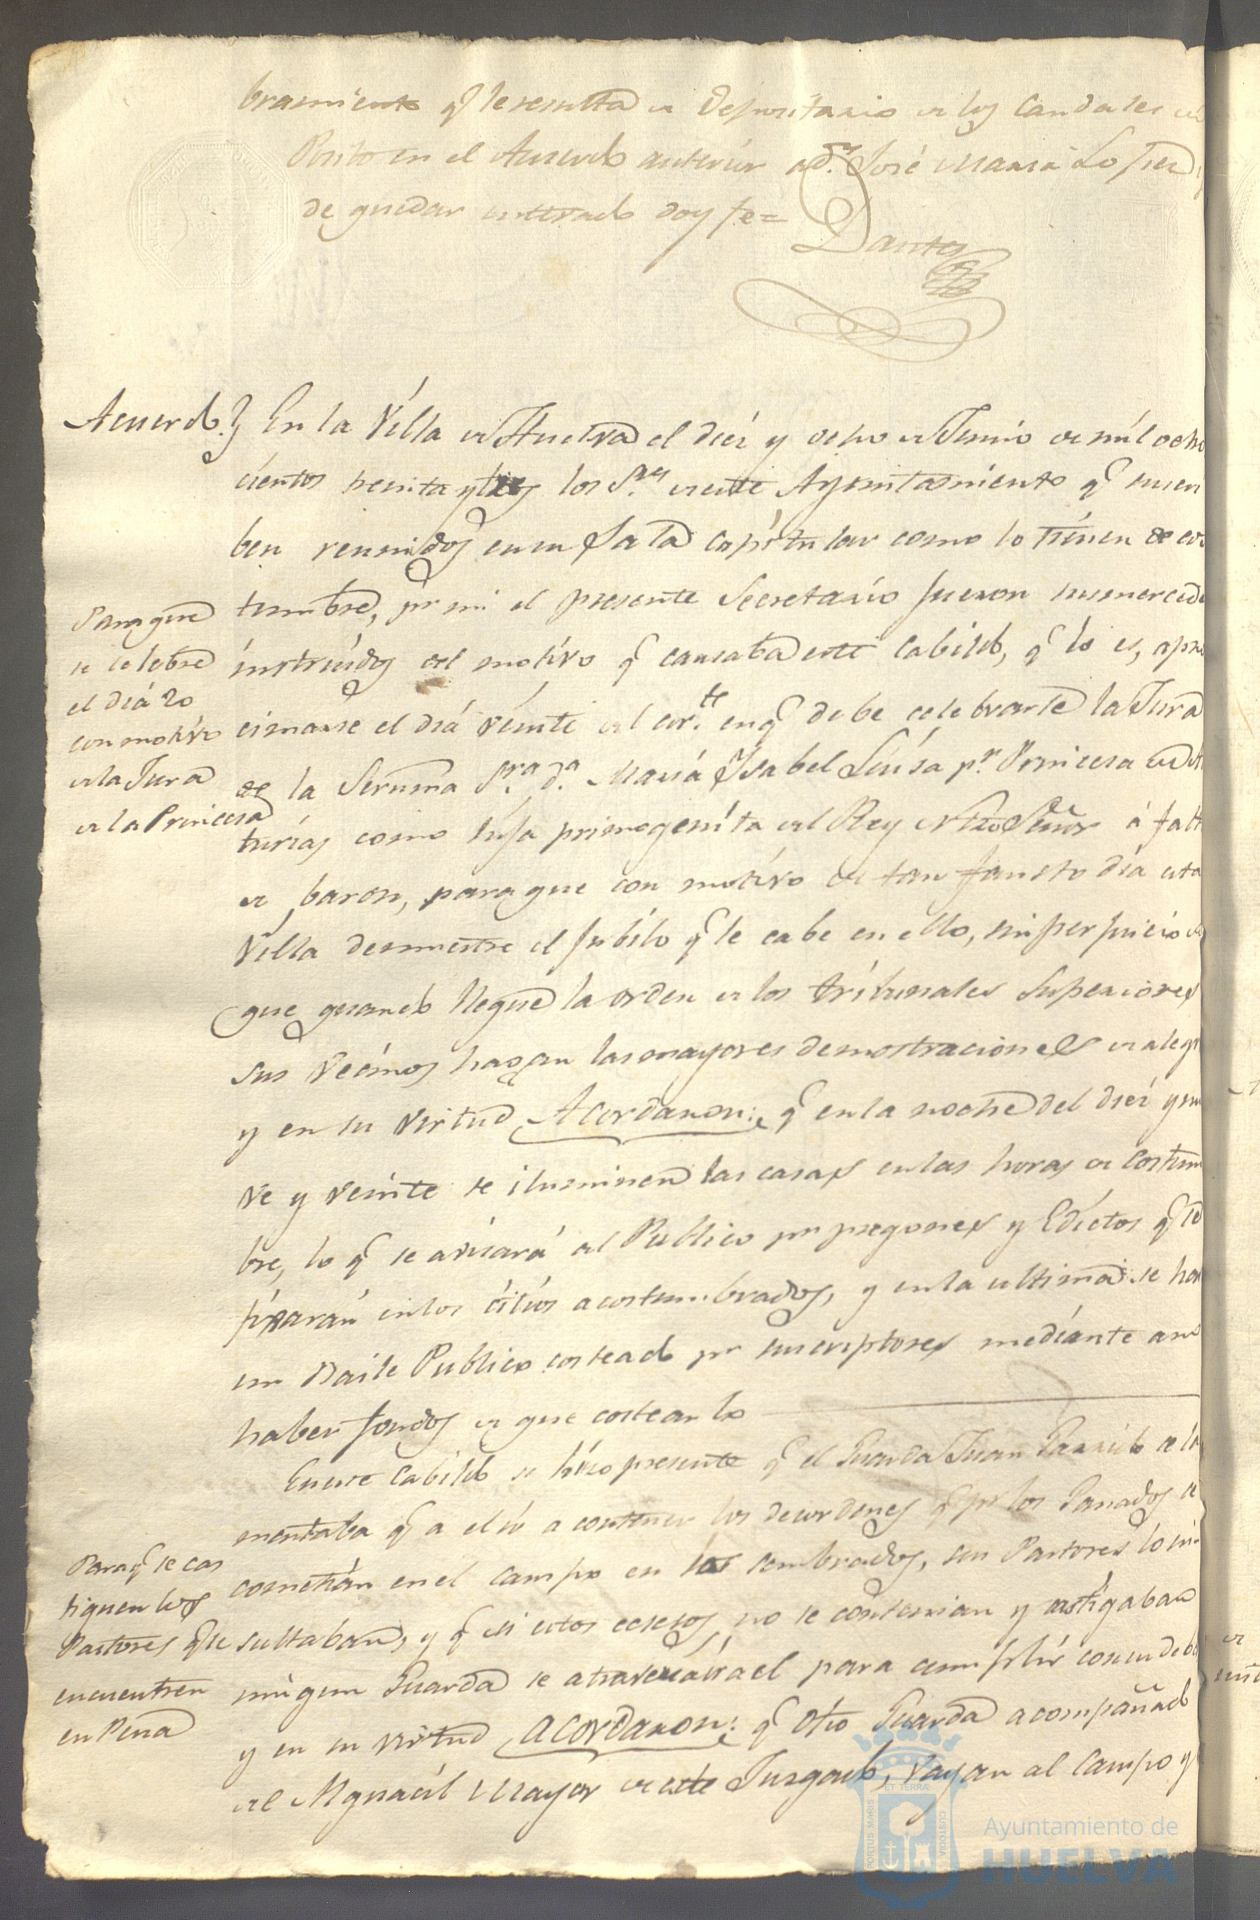 bramiento q.e le resulta de Depositario de los Caudales del
Posito en el Acuerdo anterior a d.n José Maria Lopez
de quedar enterado doy fe=
Dantes
Acuerdo. } En la Villa de Huelva el diez y ocho de Junio de mil ocho
cientos treinta y tres los S.res de este Ayuntamiento q.e suscri
ben reunidos en su Sala capitular como lo tienen de cos
tumbre, p.r mi el presente Secretario fueron sus mercedes
instruidos del motivo q.e causaba este Cabildo, q.e lo es, apro
cimarse el diá veinte del cor.te en q.e debe celebrarse la Jura
de la Serma S.ra d.a Mariá Ysabel Luisa p.r Princesa de As
turias como hija primogenita del Rey Ntro Señor á falta
de baron, para que con motivo de tan fausto día esta
Villa demuestre el jubilo q.e le cabe en ello, sin perjuicio de
que quando llegue la orden de los tribunales Superiores
sus Vecinos hagan las mayores demostraciones de alegri
y en su virtud Acordaron: q.e en la noche del diez y nue
ve y veinte se iluminen las casas en las horas de costum
bre, lo q.e se avisará al Publico p.r pregones y Edictos q.e se
fixarán en los citios acostumbrados, y en la ultima se hará
un Baile Publico costeado p.r suscriptores mediante a no
haber fondos de que costearlo
En este Cabildo se hizo presente q.e el Guarda Juan Garrido se la
mentaba q.e a el ir a contener los desordenes q.e p.r los Ganados se
cometian en el campo en los sembrados, sus Pastores lo in
sultaban, y q.e si estos ecsesos no se contenian y castigaban
ningun Guarda se atraveria a el para cumplir con su deber
y en su virtud acordaron: q.e otro Guarda acompañado
del Alguacil Mayor de este Juzgado, vayan al Campo y
Para que
se celebre
el diá 20
con motivo
de la Jura
de la Princesa
Para q.e se cas
tiguen los
Pastores q.e se
encuentren
en Pena
PORTUS MARIS ET TERRAE CUSTODIA
Ayuntamiento de
HUELVA